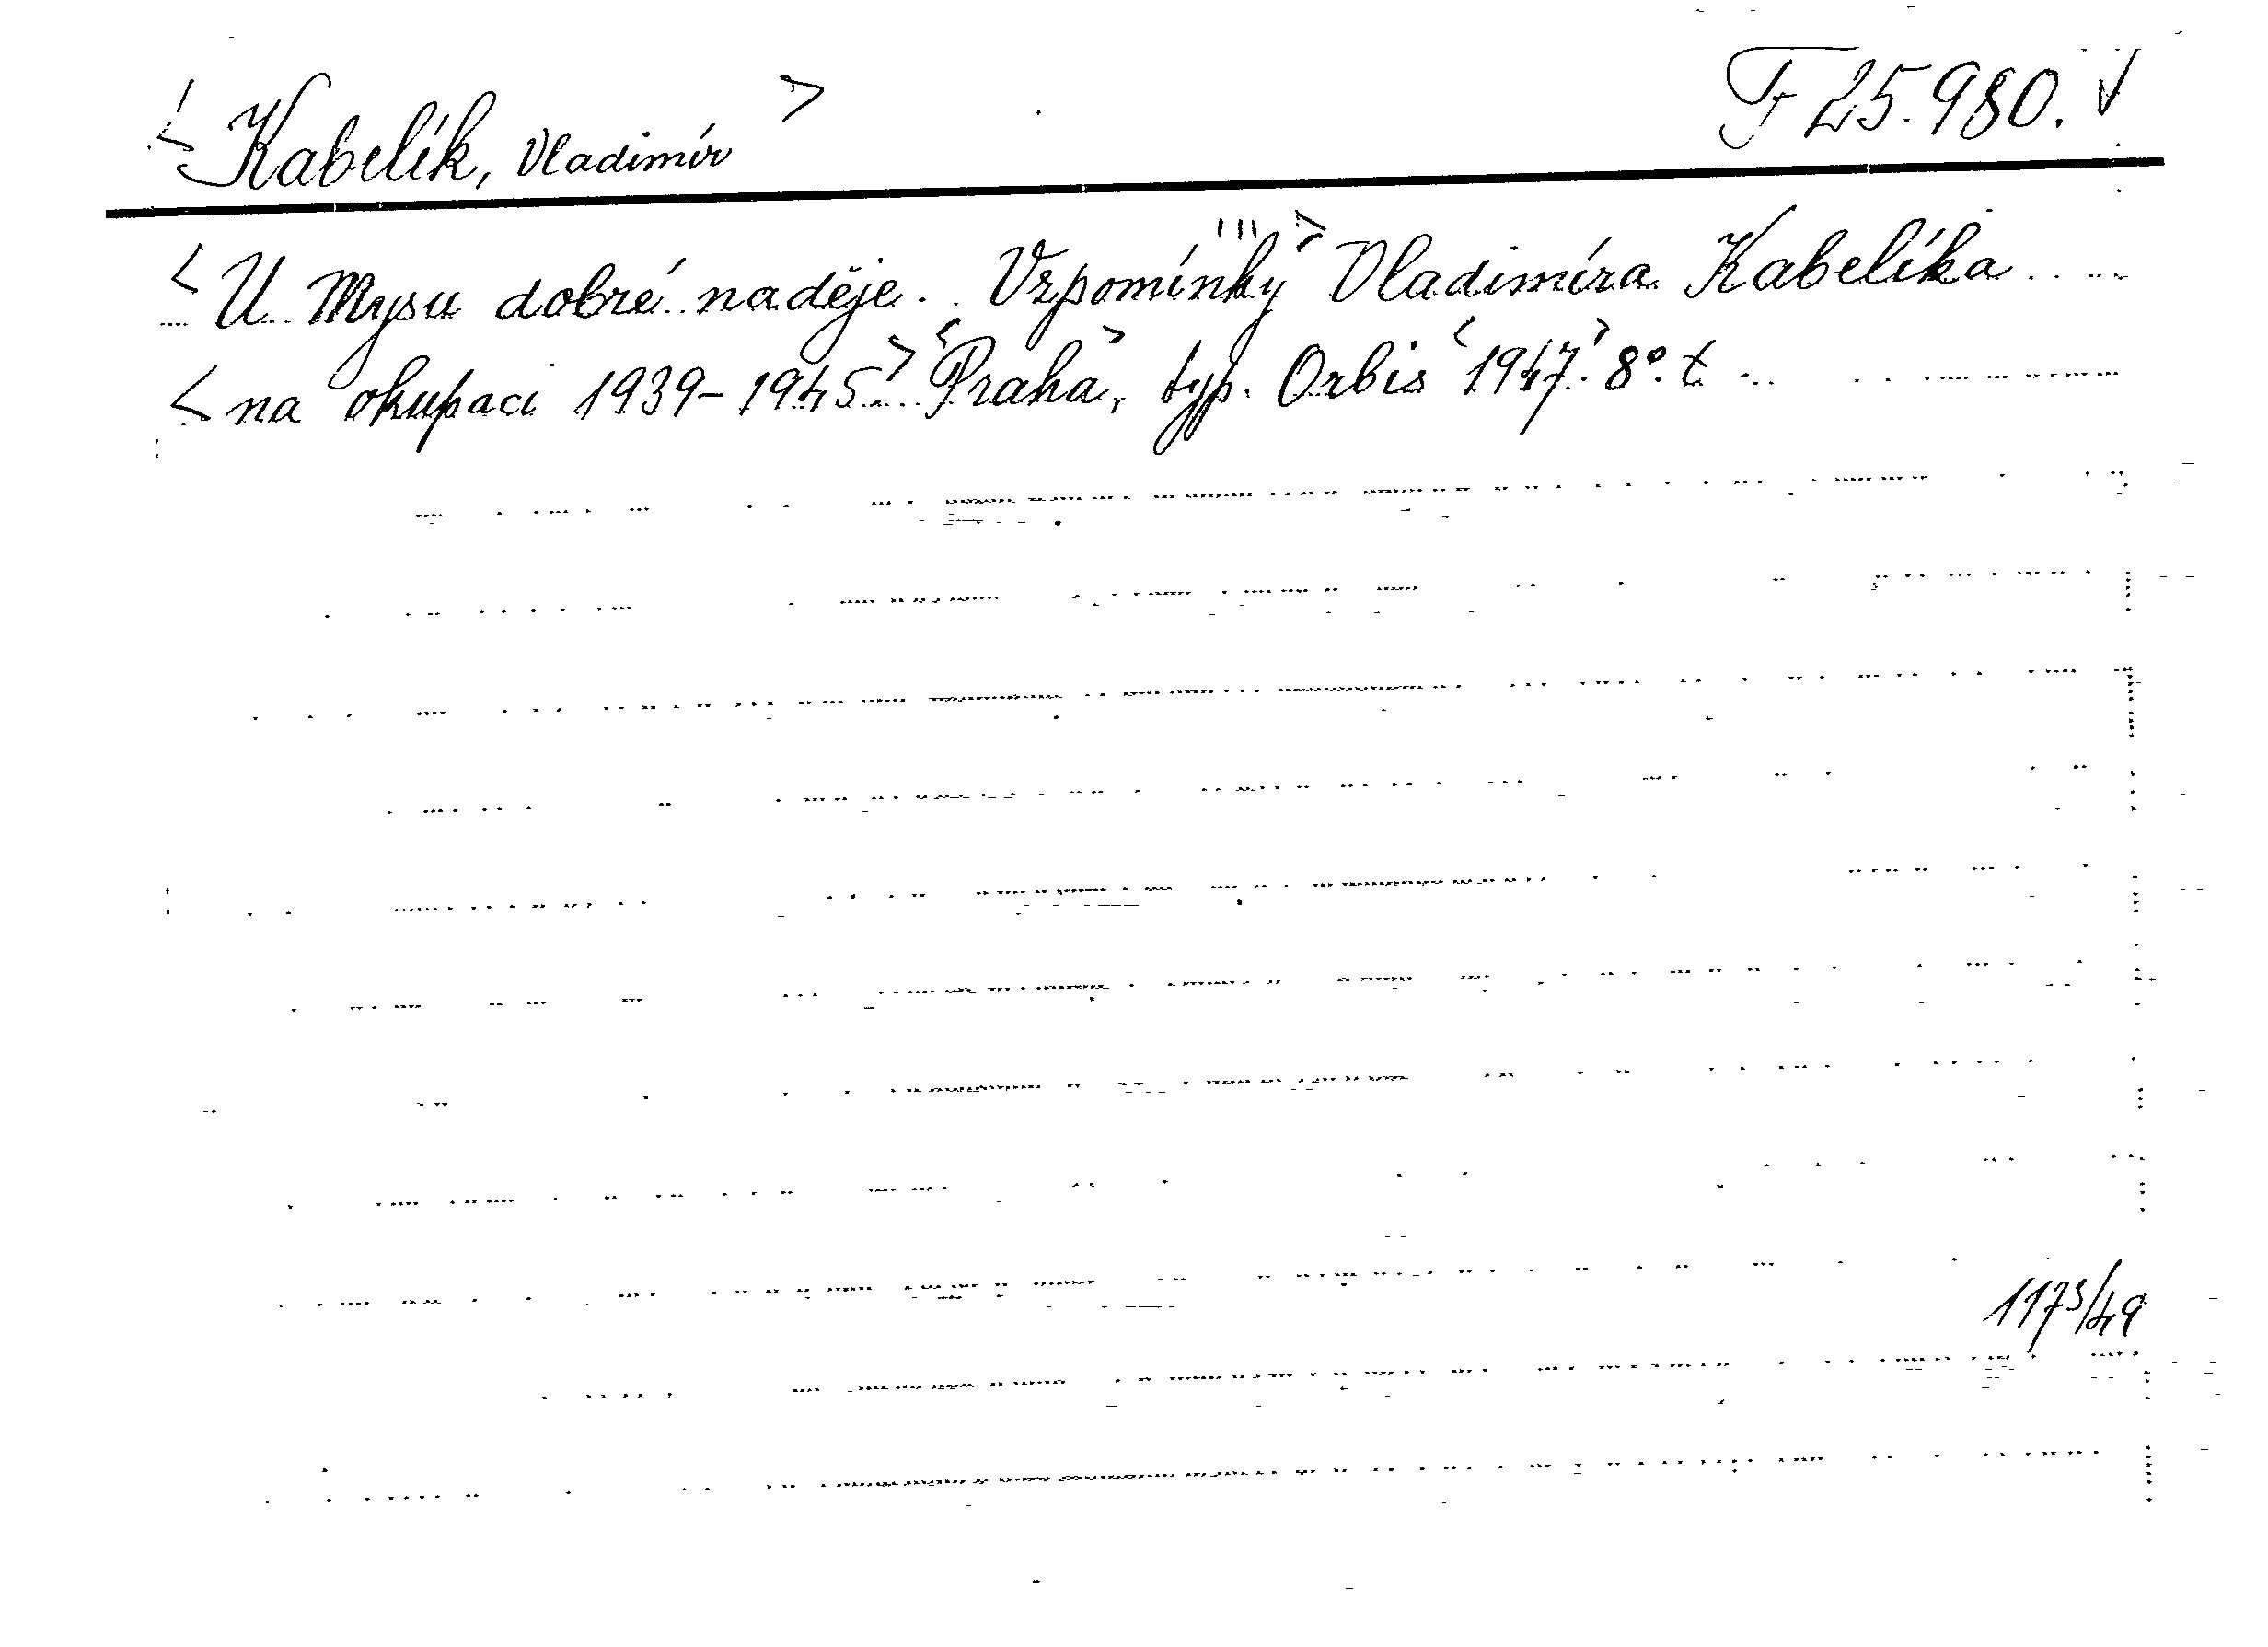 <Kabelík, Vladimír> F 25.980. V
<U Mysu dobré naděje. Vzpomínky> Vladimíra Kabelíka
<na okupaci 1939-1945.> <Praha>, typ. Orbis <1947.> 8°. t.
1173/49